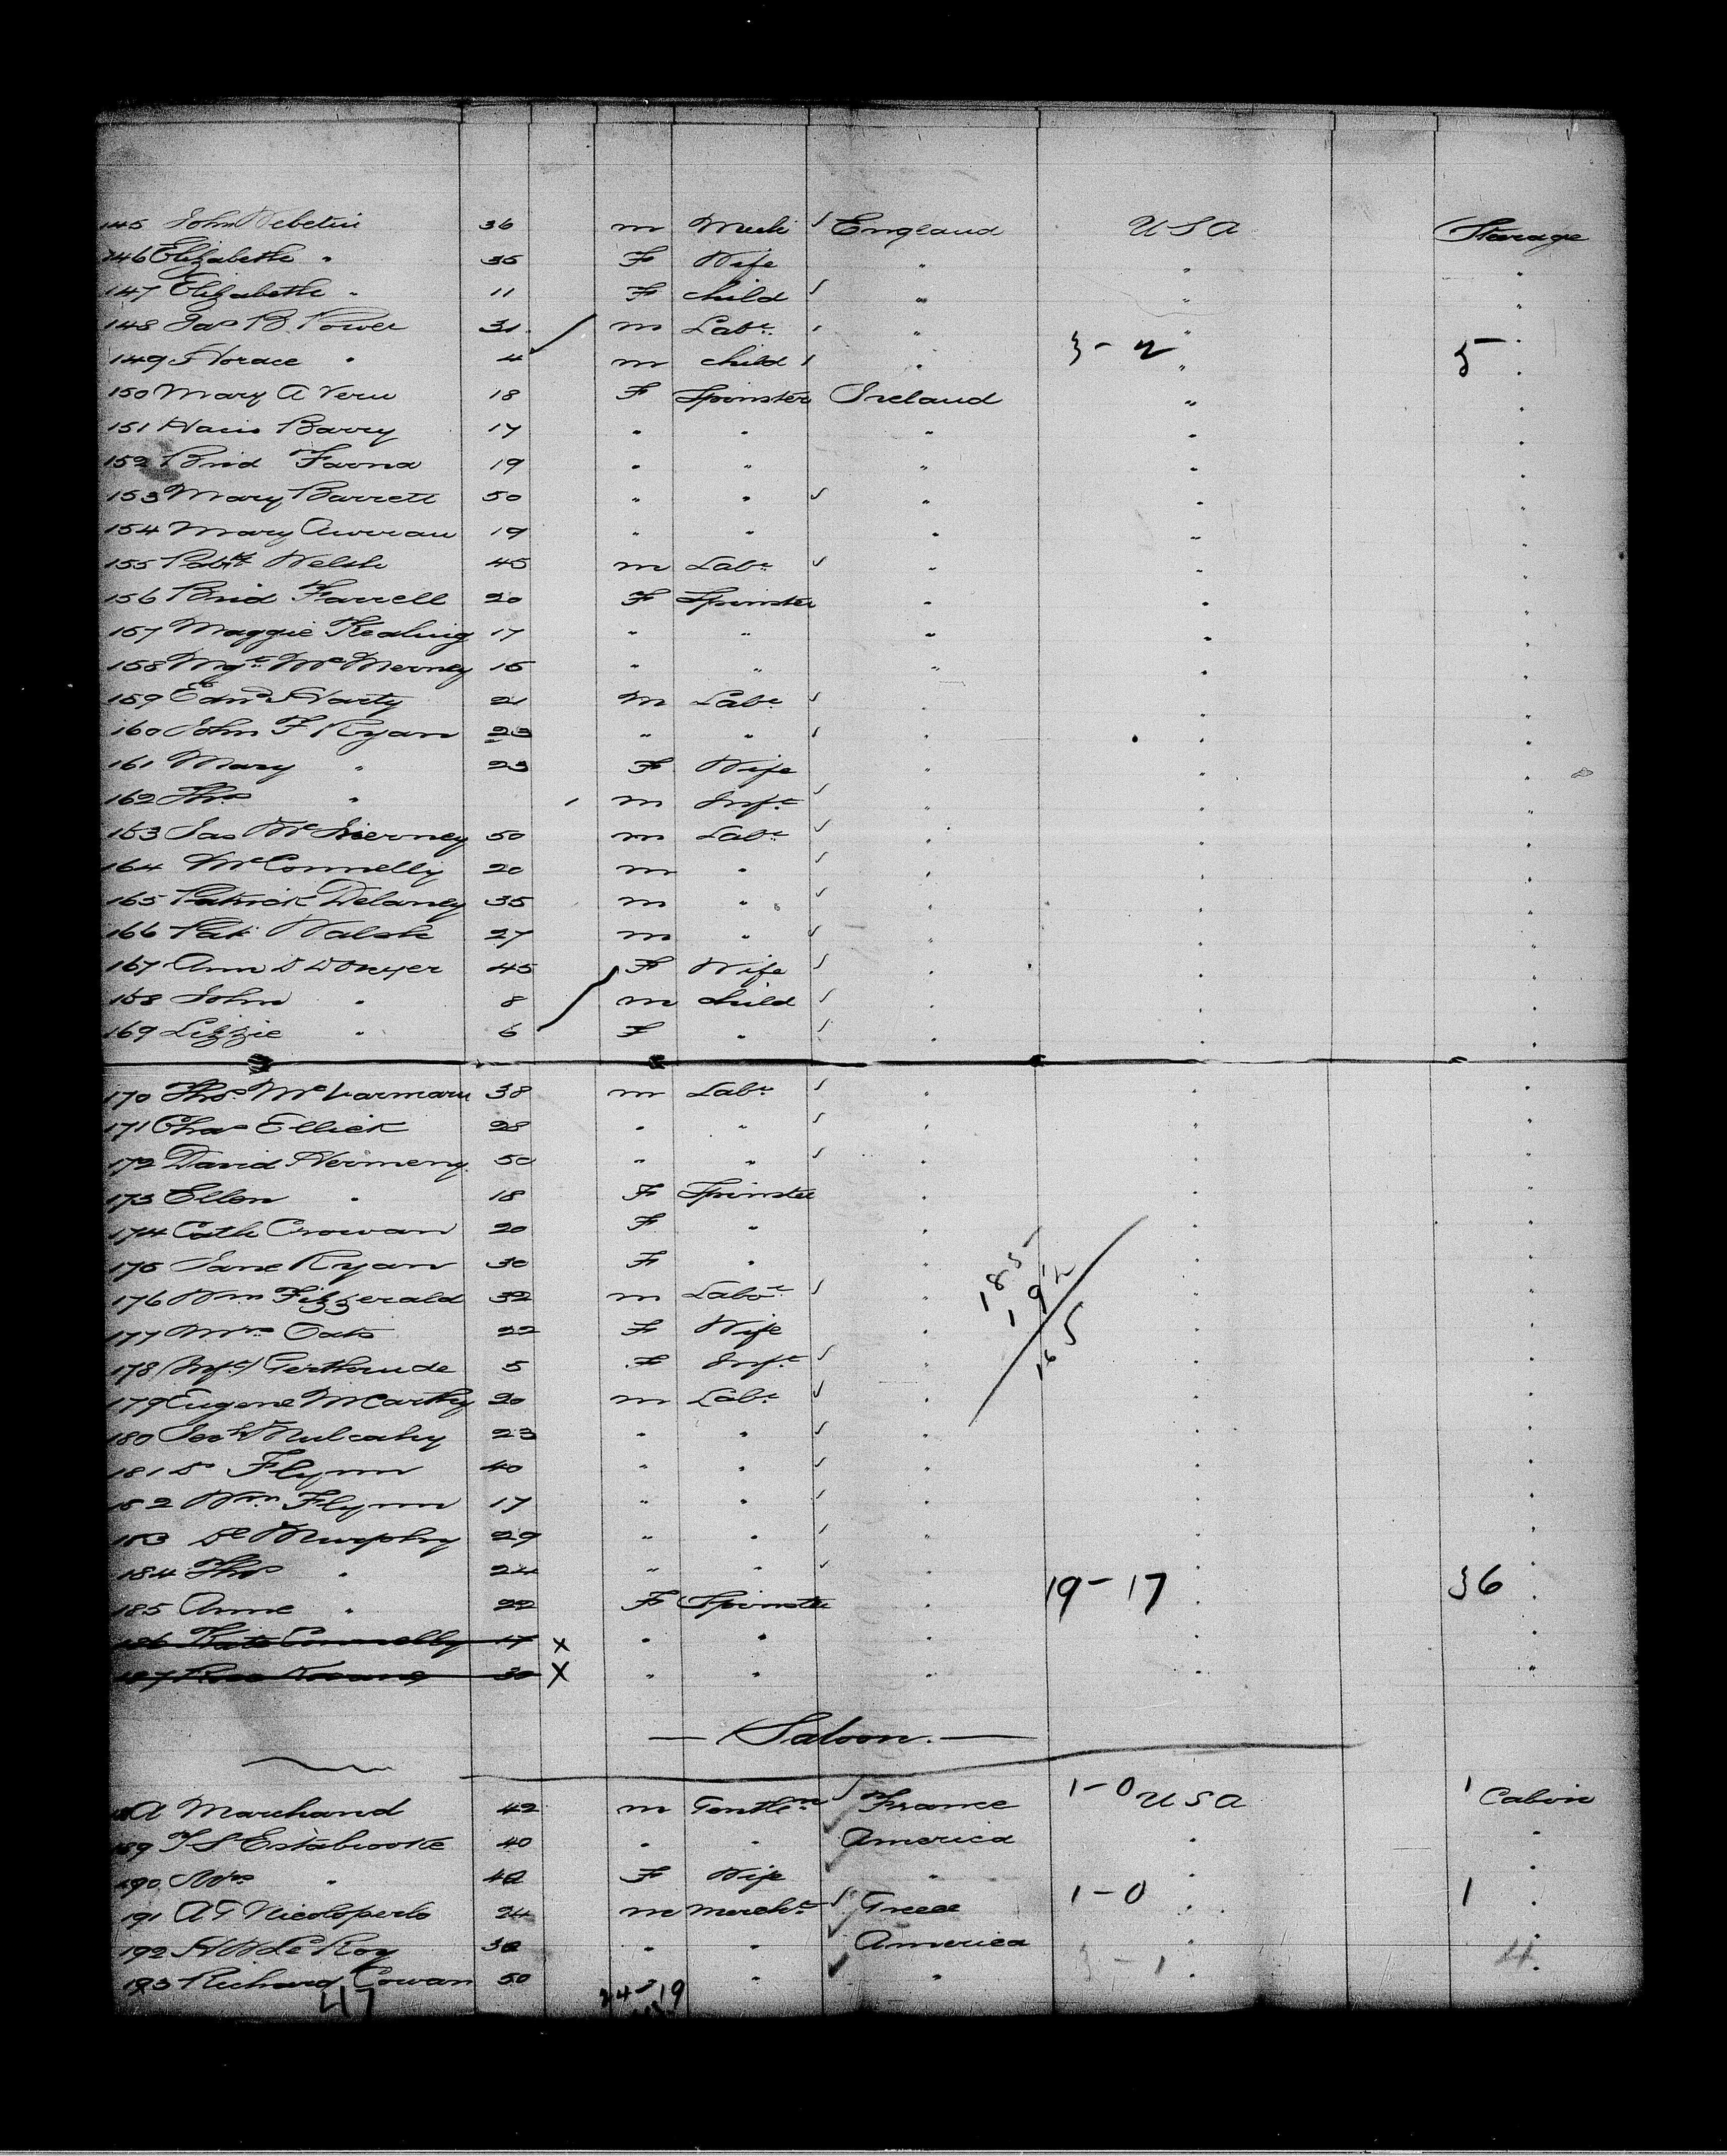 145 John 36 m Mech England USA Steerage
146 Elizabeth " 35 F Wife " " "
147 Elizabeth " 11 F child " " "
148 Jas B Power 31 m Labr " " "
149 Horace " 4 m child " 3-2 " 5 "
150 Mary A Vern 18 F Spinster Ireland " "
151 Barry 17 " " " " "
152 Brid 19 " " " " "
153 Mary Barrett 50 " " " " "
154 Mary 19 " " " " "
155 Welsh 45 m Labr " " "
156 Brid Farrell 20 F Spinster " " "
157 Maggie Kealing 17 " " " " "
158 Mgt 15 " " " " "
159 Edwd Harty 21 m Labr " " "
160 John F Ryan 23 " " " " "
161 Mary " 23 F Wife " " "
162 Thos " 1 m Inft " " "
163 Jas 50 m Labr " " "
164 McConnelly 20 m " " " "
165 Patrick Delaney 35 m " " " "
166 Pat Walsh 27 m " " " "
167 Ann D 45 F Wife " " "
168 John " 8 m child " " "
169 Lizzie " 6 F " " " "
170 Thos 38 m Labr " " "
171 Chas Ellick 28 " " " " "
172 David 50 " " " " "
173 Ellen " 18 F Spinster " " "
174 Cath Crowan 20 F " " " "
175 Jane Ryan 30 F " " " "
176 Wm Fitzgerald 32 m Labr " " "
177 Mrs Oats 22 F Wife " " "
178 (Inft) Gerthrude 5 F Inft " " "
179 Eugene McCarthy 20 m Labr " " "
180 Mulcahy 23 " " " " "
181 D Flynn 40 " " " " "
182 Wm Flynn 17 " " " " "
183 Murphy 29 " " " " "
184 Thos " 24 " " " 19-17 " 36 "
185 Anne " 22 F Spinster " " "
186 Kate Connelly 17 X " " " " "
187 30 X " " " " "
Saloon.
A Marchand 42 m Gentlemn France 1-0 USA 1 Cabin
189 T S Estabrooke 40 " " America " "
190 Mrs " 40 F Wife " " "
191 A G 24 m Mercht Greece 1-0 " 1 "
192 H W LeRoy 30 " " America " "
193 Richard Cowan 50 " " 3-1 " 4 "
47 24-19